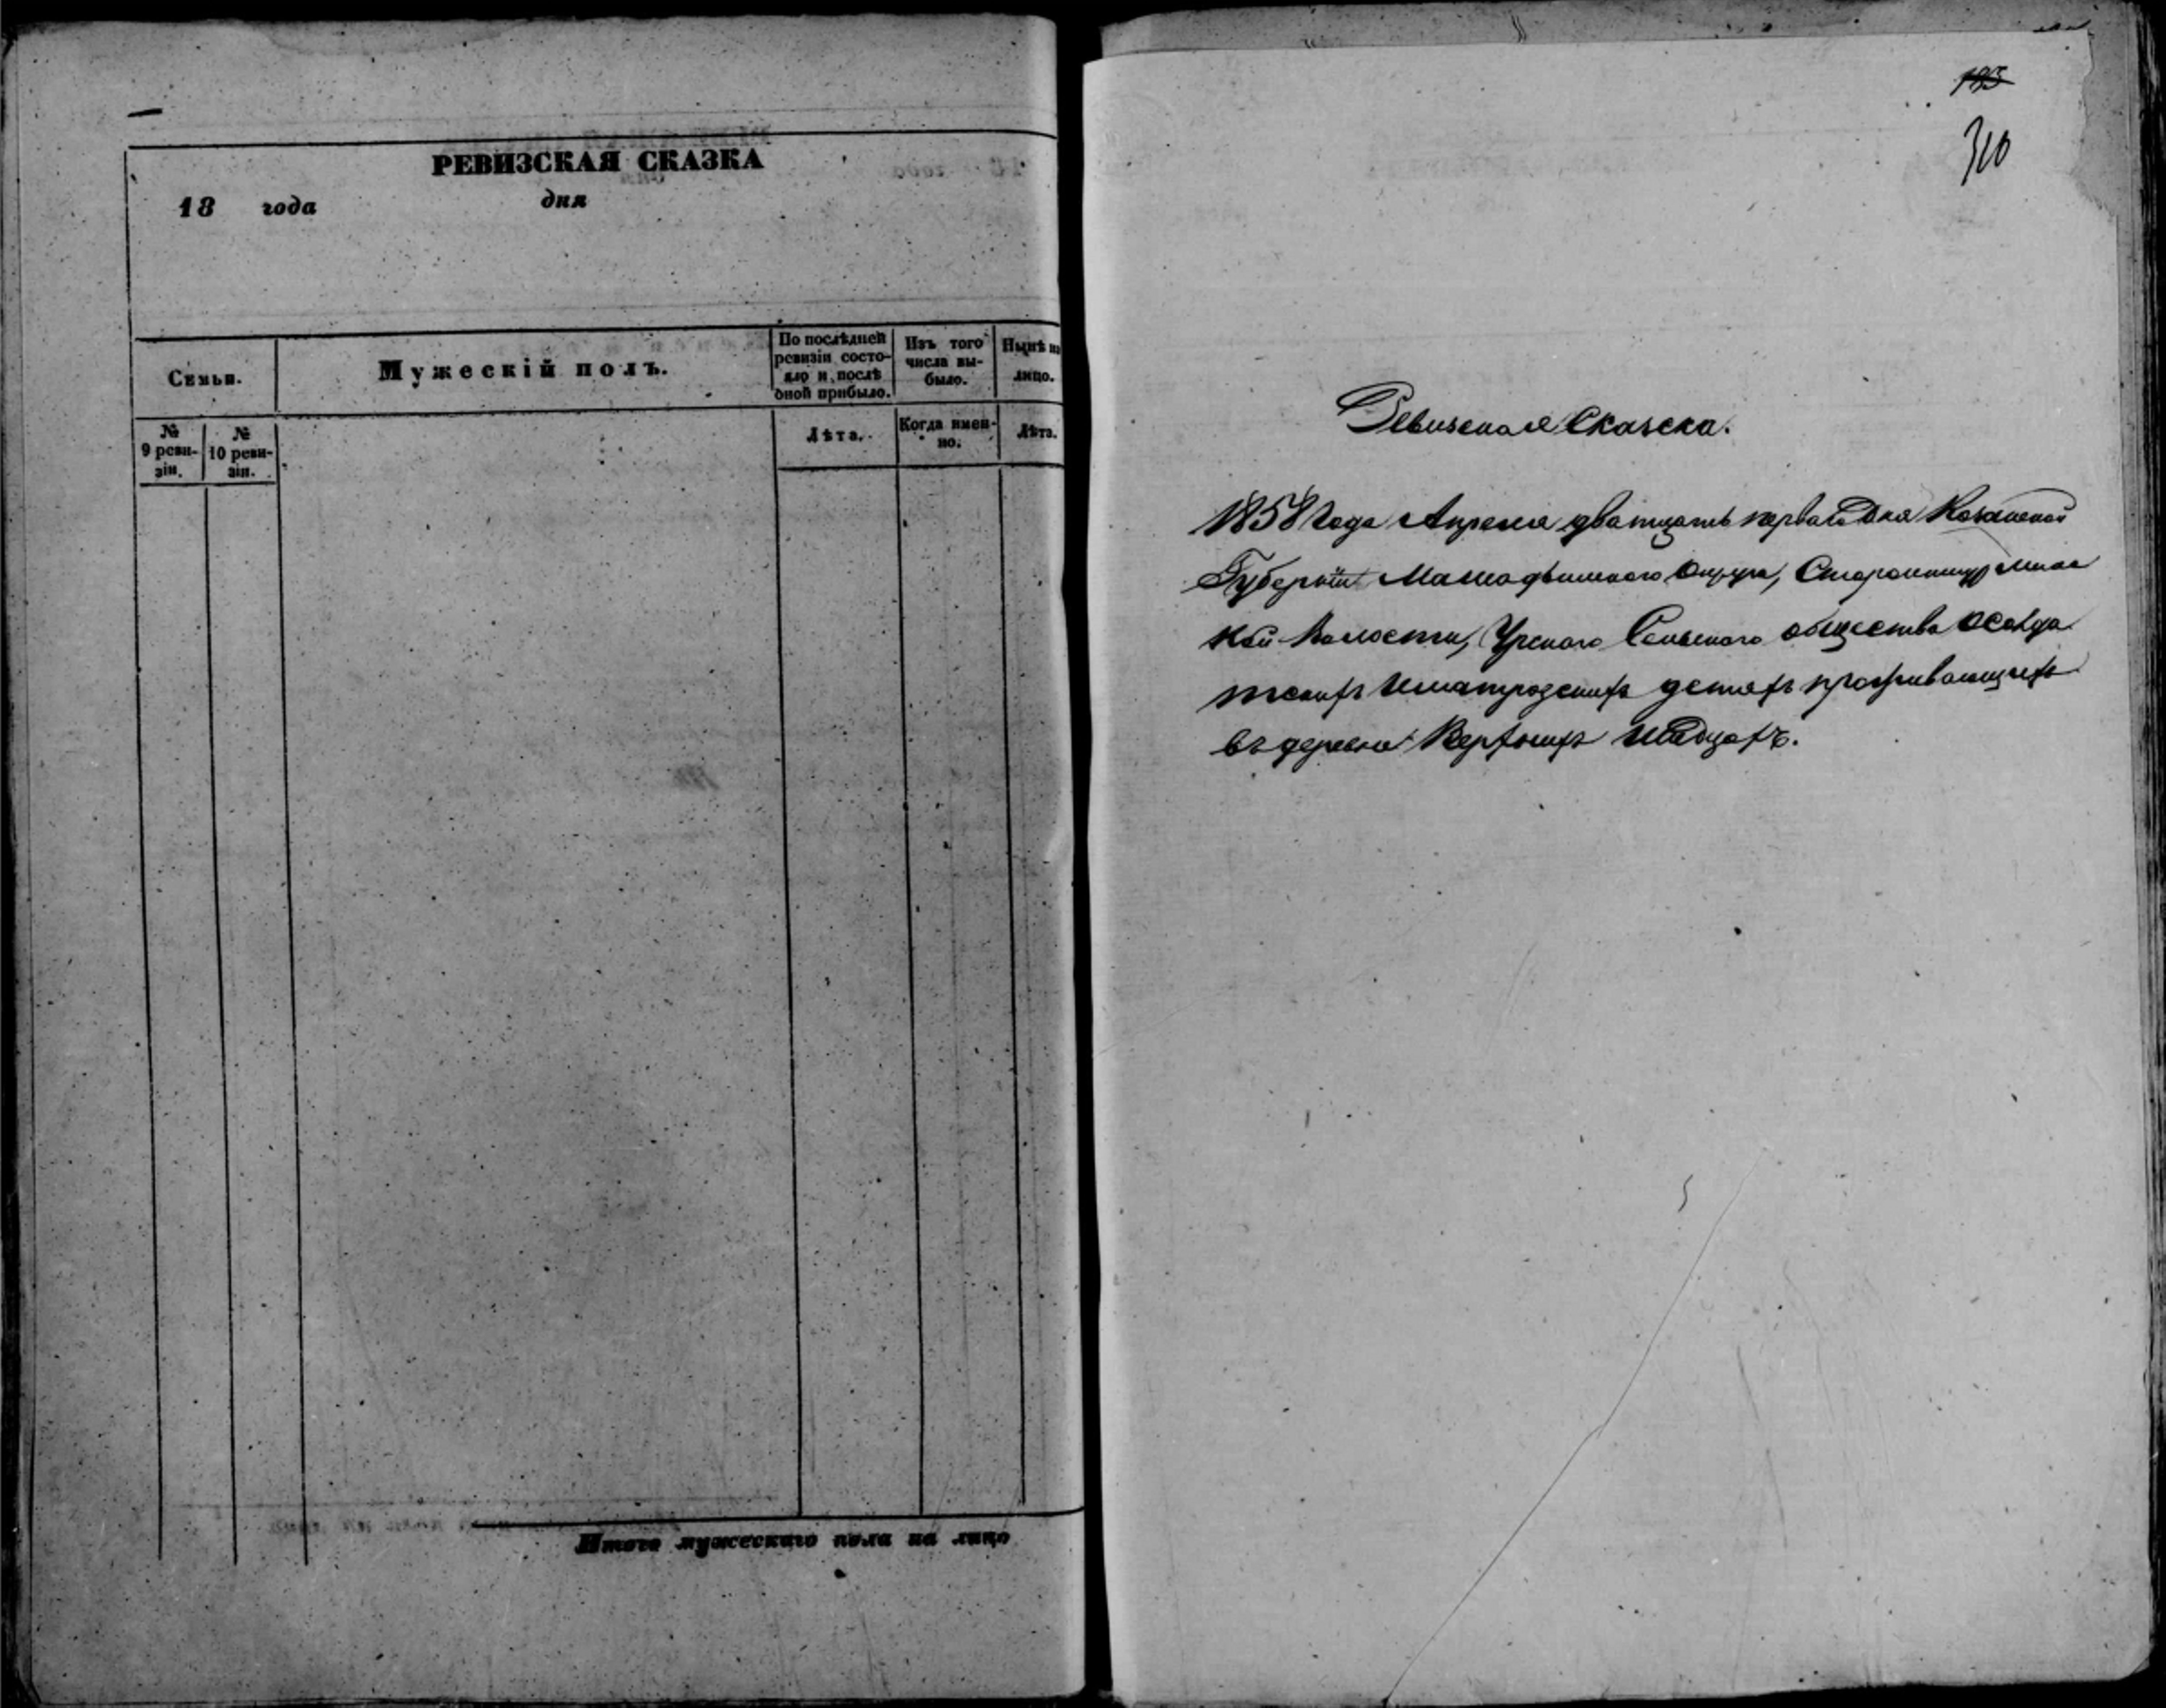 РЕВИЗСКАЯ СКАЗКА
18 года дня
Семьи.
Мужескій полъ.
По послѣдней ревизіи состо-
яло и послѣ
оной прибыло.
Изъ того
числа вы-
было.
Нынѣ на
лицо.
№
9 реви-
зіи.
№
10 реви-
зіи.
Лѣта.
Когда имен-
но.
Лѣта.
Итого мужескаго пола на лицо
310
Ревизская Сказска.
1858 Года Апреля дватцать перваго Дня Казанской
Губерніи Мамадышскаго Округа,
кой Волости, Сельскаго общества о солда
тскихъ иматрозскихъ детяхъ проживающихъ
въ деревне Верхнихъ Шадцахъ.